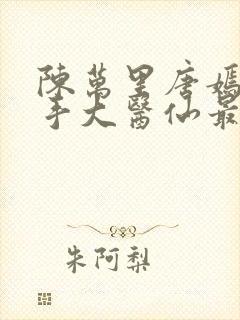 陳萬里唐嫣
手大醫仙最
朱阿梨